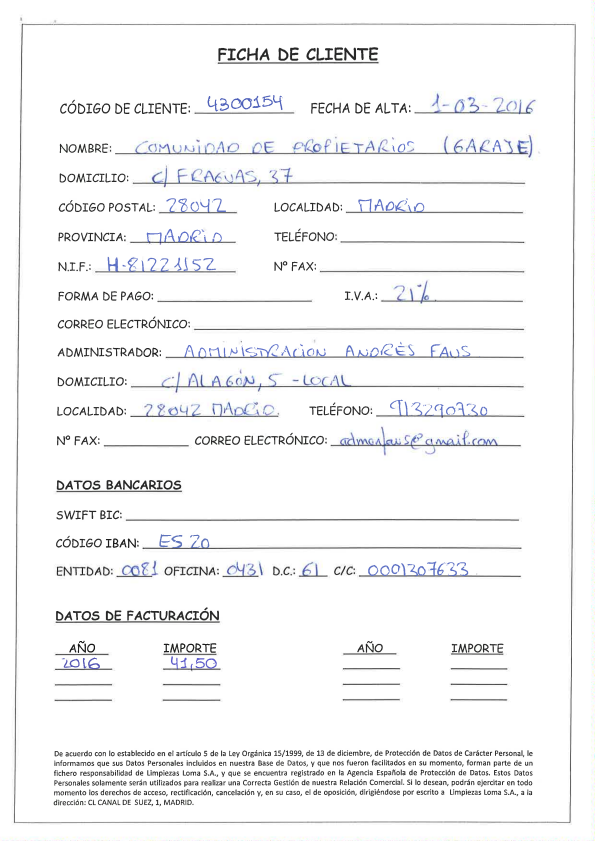 FICHA DE CLIENTE
CÓDIGO DE CLIENTE: 4300154 FECHA DE ALTA: 1-03-2016
NOMBRE: COMUNIDAD DE PROPIETARIOS (GARAJE)
DOMICILIO: C/ FRAGUAS, 37
CÓDIGO POSTAL: 28042 LOCALIDAD: MADRID
PROVINCIA: MADRID TELÉFONO:
N.I.F.: H-81221152 Nº FAX:
FORMA DE PAGO: I.V.A.: 21%
CORREO ELECTRÓNICO:
ADMINISTRADOR: ADMINISTRACIÓN ANDRÉS FAUS
DOMICILIO: C/ ALAGÓN, 5 - LOCAL
LOCALIDAD: 28042 MADRID. TELÉFONO: 913290730
Nº FAX: CORREO ELECTRÓNICO: admonfaus@gmail.com
DATOS BANCARIOS
SWIFT BIC:
CÓDIGO IBAN: ES 20
ENTIDAD: 0081 OFICINA: 0431 D.C.: 61 C/C: 0001307633
DATOS DE FACTURACIÓN
AÑO IMPORTE AÑO IMPORTE
2016 41,50
De acuerdo con lo establecido en el artículo 5 de la Ley Orgánica 15/1999, de 13 de diciembre, de Protección de Datos de Carácter Personal, le
informamos que sus Datos Personales incluidos en nuestra Base de Datos, y que nos fueron facilitados en su momento, forman parte de un
fichero responsabilidad de Limpiezas Loma S.A., y que se encuentra registrado en la Agencia Española de Protección de Datos. Estos Datos
Personales solamente serán utilizados para realizar una Correcta Gestión de nuestra Relación Comercial. Si lo desean, podrán ejercitar en todo
momento los derechos de acceso, rectificación, cancelación y, en su caso, el de oposición, dirigiéndose por escrito a Limpiezas Loma S.A., a la
dirección: CL CANAL DE SUEZ, 1, MADRID.